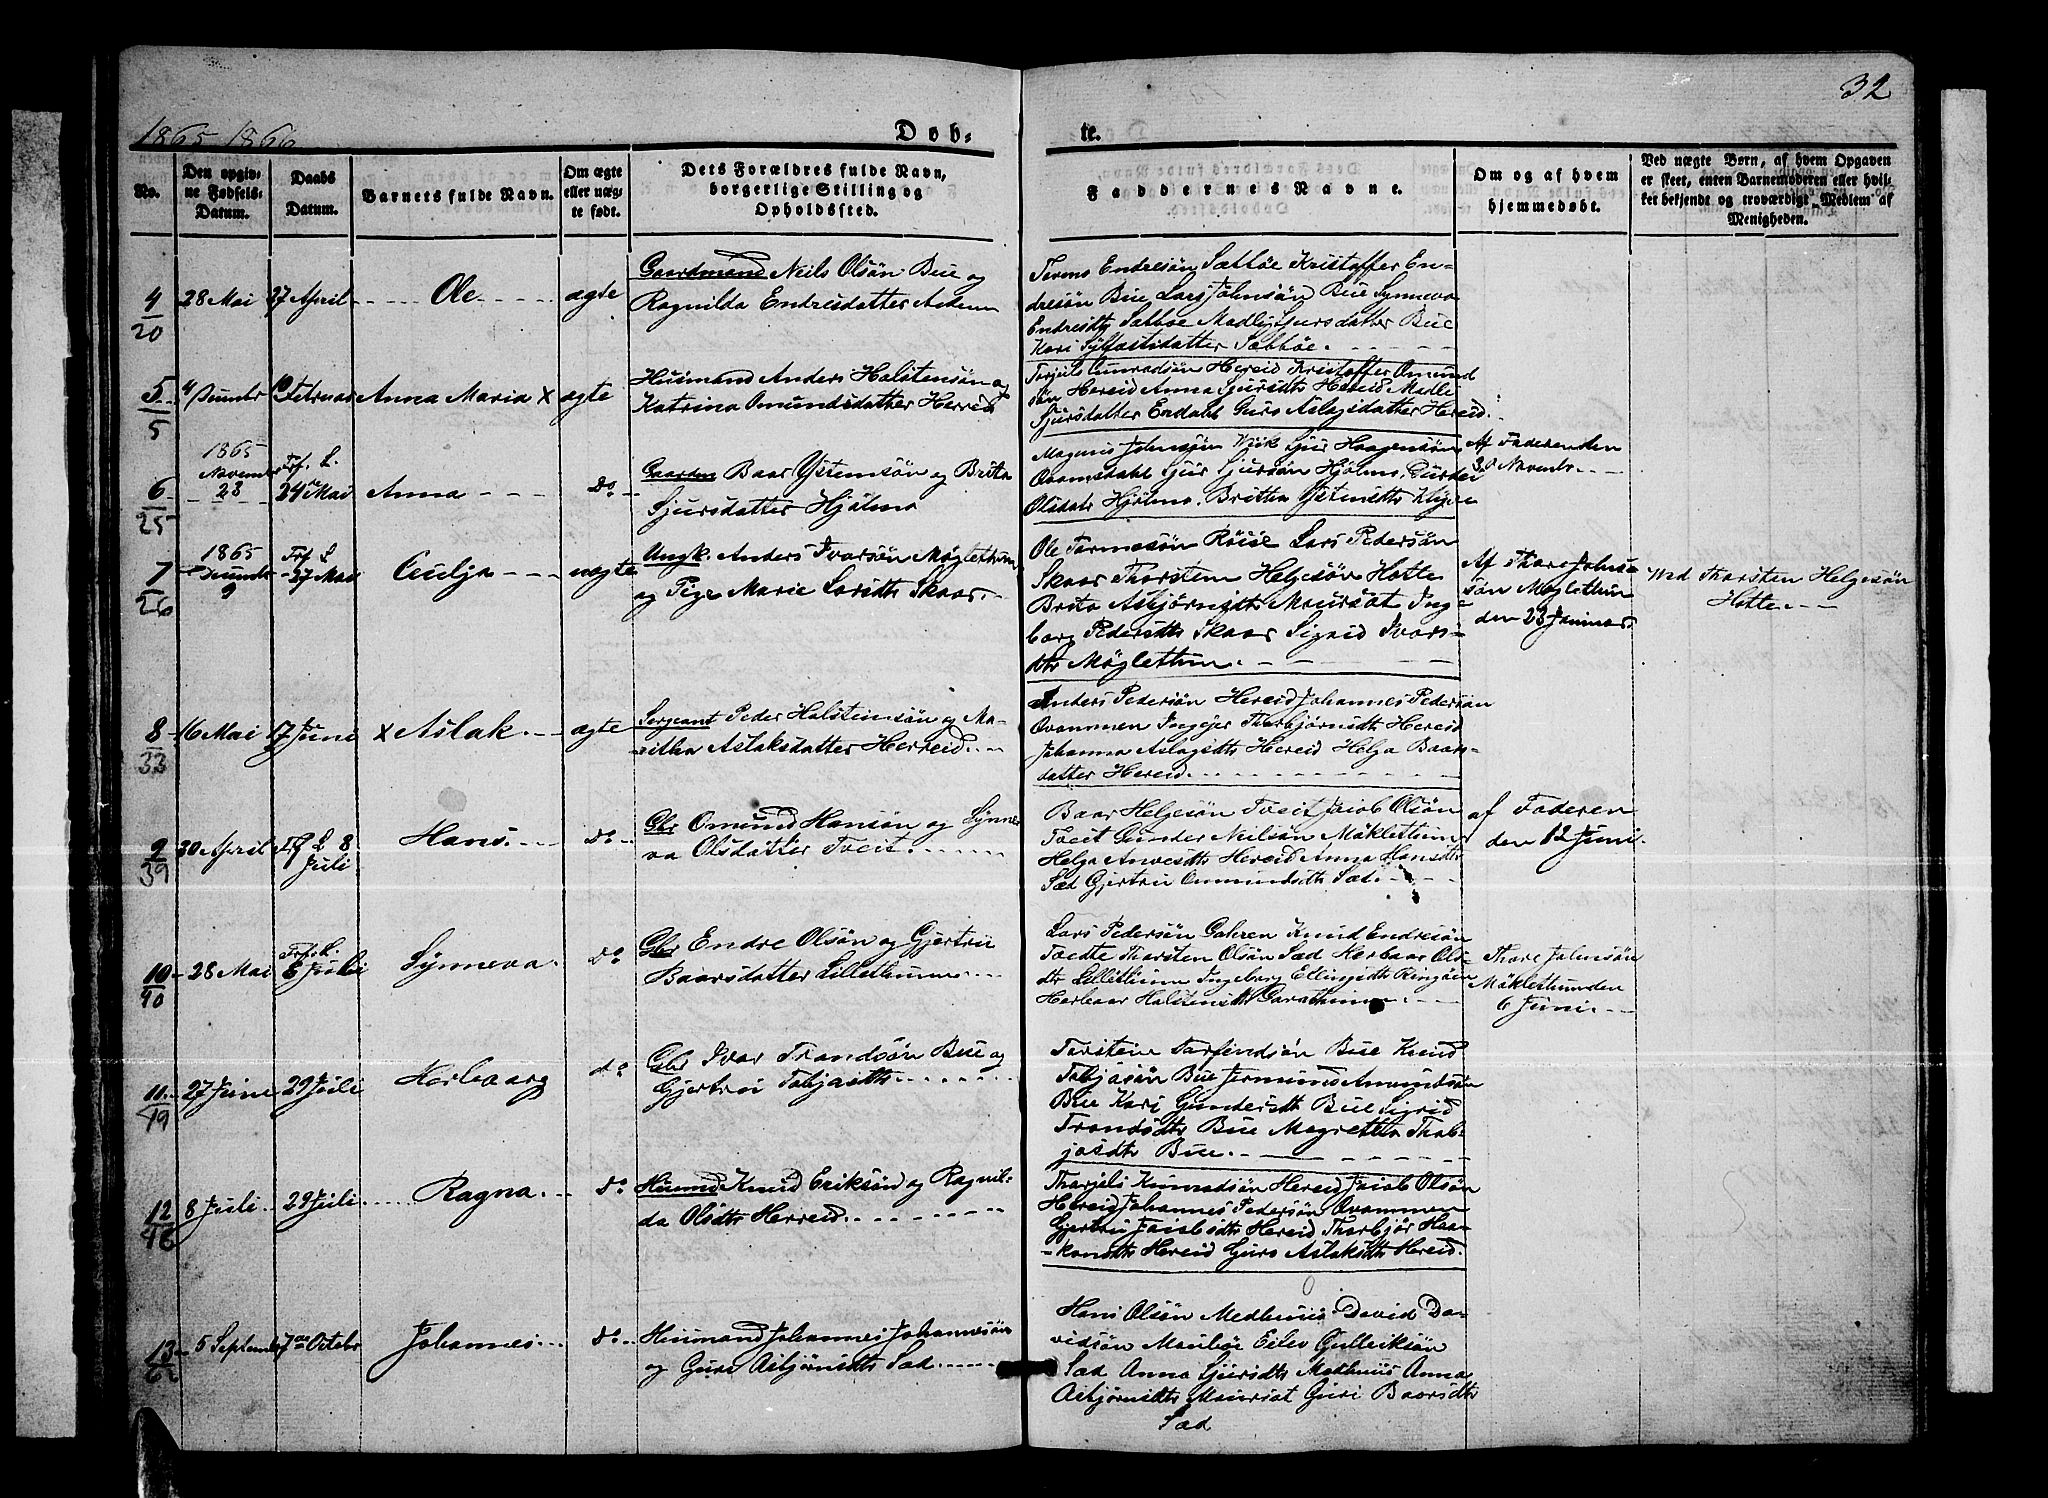 32
1865 1866
Døb-
te.
No.
Den opgiv-
ne Fødsels-
Datum.
Daabs
Datum.
Barnets fulde Navn.
Om ægte
eller uæg-
te født.
Dets Forældres fulde Navn,
borgerlige Stilling og
Opholdssted.
Faddernes Navne.
Om og af hvem
hjemmedøbt.
Ved uægte Børn, af hvem Opgaven
er skeet, enten Barnemoderen eller hvil-
ket bekjendt og troværdigt Medlem af
Menigheden.
4
20
28 Mai
27 April
Ole
ægte
Gaardmand Neils Olsøn Bue og
Ragnilda Endresdatter
Endresøn Sæbbøe Kristoffer En-
dresøn Bue Lars Johnsøn Bue Synneva
Endresdtr Sæbbøe Madli Sjursdatter Bue
Kari Sylfæstsdatter Sæbbøe.
5
5
4 Decembr
Februar
Anna Maria x
ægte
Husmand Anders Halstensøn og
Katrina Omundsdatter Herreid
Torjuls Hereid Kristoffer Omund
søn Hereid Anna Sjursdtr Hereid Madli
Sjursdatter Endahl Guro Aslagsdatter Hereid.
6
25
1865
November
28
Trf. L.
24de Mai
Anna
Do
Gaardm Baar Ystensøn og Brita
Sjursdatter Hjølmo
Magnus Johnsøn Wiik Sjur Haagensøn
Qvamsdahl Sjur Sjursøn Hjølmo Durdei
Olsdatr Hjølmo. Britta Ystensdtr
Af Faderen den
30 Novembr.
7
26
1865
Decembr
9
Trf. L
27 Mai
Cecilja
uægte
Ungk. Anders Ivarsøn Møglethun
og Pige Marie Larsdtr Skaar.
Ole Tormosøn Røise Lars Pedersøn
Skaar Thorsten Helgesøn Hotle
Brita Asbjørnsdtr Maursæt Inge
borg Pedersdtr Skaar Sigrid Ivars-
dtr Møglethun.
Af Thore Johne
søn Møglethun
den 23 Januar.
Ved Thorsten Helgesøn
Hotle.
8
33
16 Mai
17 Juni
x Aslak.
ægte
Sergeant Peder Halsteinsøn og Ma-
ritha Aslaksdatter Herreid.
Anders Pedersøn Hereid Johannes Pedersøn
Qvammen Ingejer Thorbjørnsdtr Hereid
Johanna Aslagsdtr Hereid Helga Baars-
datter Hereid.
9
39
30 April
Trf L 8
Juli
Hans.
Do
Gbr Omund Hansøn og Synne
va Olsdatter Tveit.
Baar Helgesøn Tveit Jacob Olsøn
Tveit Gunder Neilsøn Møklethun
Helga Hereid Anna Hansdtr
Sæd Gjertru Ommundsdtr Sæd.
af Faderen
den 12 Juni.
10
40
28 Mai
Trf. L.
8 Juli
Synneva.
Do
Gbr Endre Olsøn og Gjertru
Baarsdatter Lillethun.
Lars Pedersøn Garen Knud Endresøn
Tvedte Thorsten Olsøn Sæd Herbaar Ols-
dtr Lillethun Ingeborg Ellingsdtr Ringøen
Herbaar Halstensdtr Garathun.
Thore Johnsøn
Møklethun den
6 Juni.
11
49
27 Juni
29 Juli
Herbaarg
do
Gbr Ivar Trondsøn Bue og
Gjertru Tobjasdtr
Torstein Torfindsøn Bue Knud
Tobjasøn Bue Jermund Amundsøn
Bue Kari Gundersdtr Bue Sigrid
Trondsdtr Bue Magretha Thob-
jasdtr Bue.
12
46
8 Juli
29 Juli
Ragna.
Do
Husmd Knud Eriksøn og Ragnil-
da Olsdtr Herreid.
Thorjels Hereid Jacob Olsøn
Hereid Johannes Pedersøn Qvammen
Gjertru Jacobsdtr Hereid Thorbjør Haa-
konsdtr Hereid Guro Aslaksdtr Hereid.
13
62
5 Septembr
7de Octobr
Johannes.
Do
Husmand Johannes Johannesøn
og Guro Asbjørnsdtr Sæd.
Hans Olsøn Medhuus David Da-
vidsøn Eilev Gulleiksøn
Sæd Anna Sjursdtr Medhuus Anna
Asbjørnsdtr Maursæt Guri Baarsdtr
Sæd